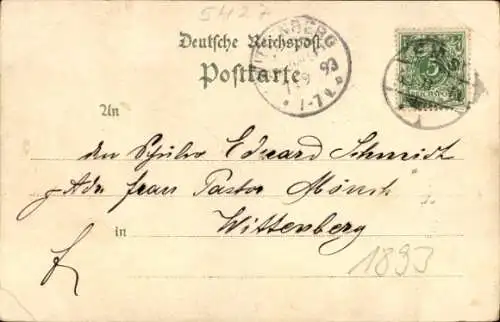 5427
Deutsche Reichspost
Postkarte
WITTENBERG
93
1-7 N.
5
EMS
An
den Schüler Eduard Schmidt
Adr. Frau Pastor Mönch
in Wittenberg
1893